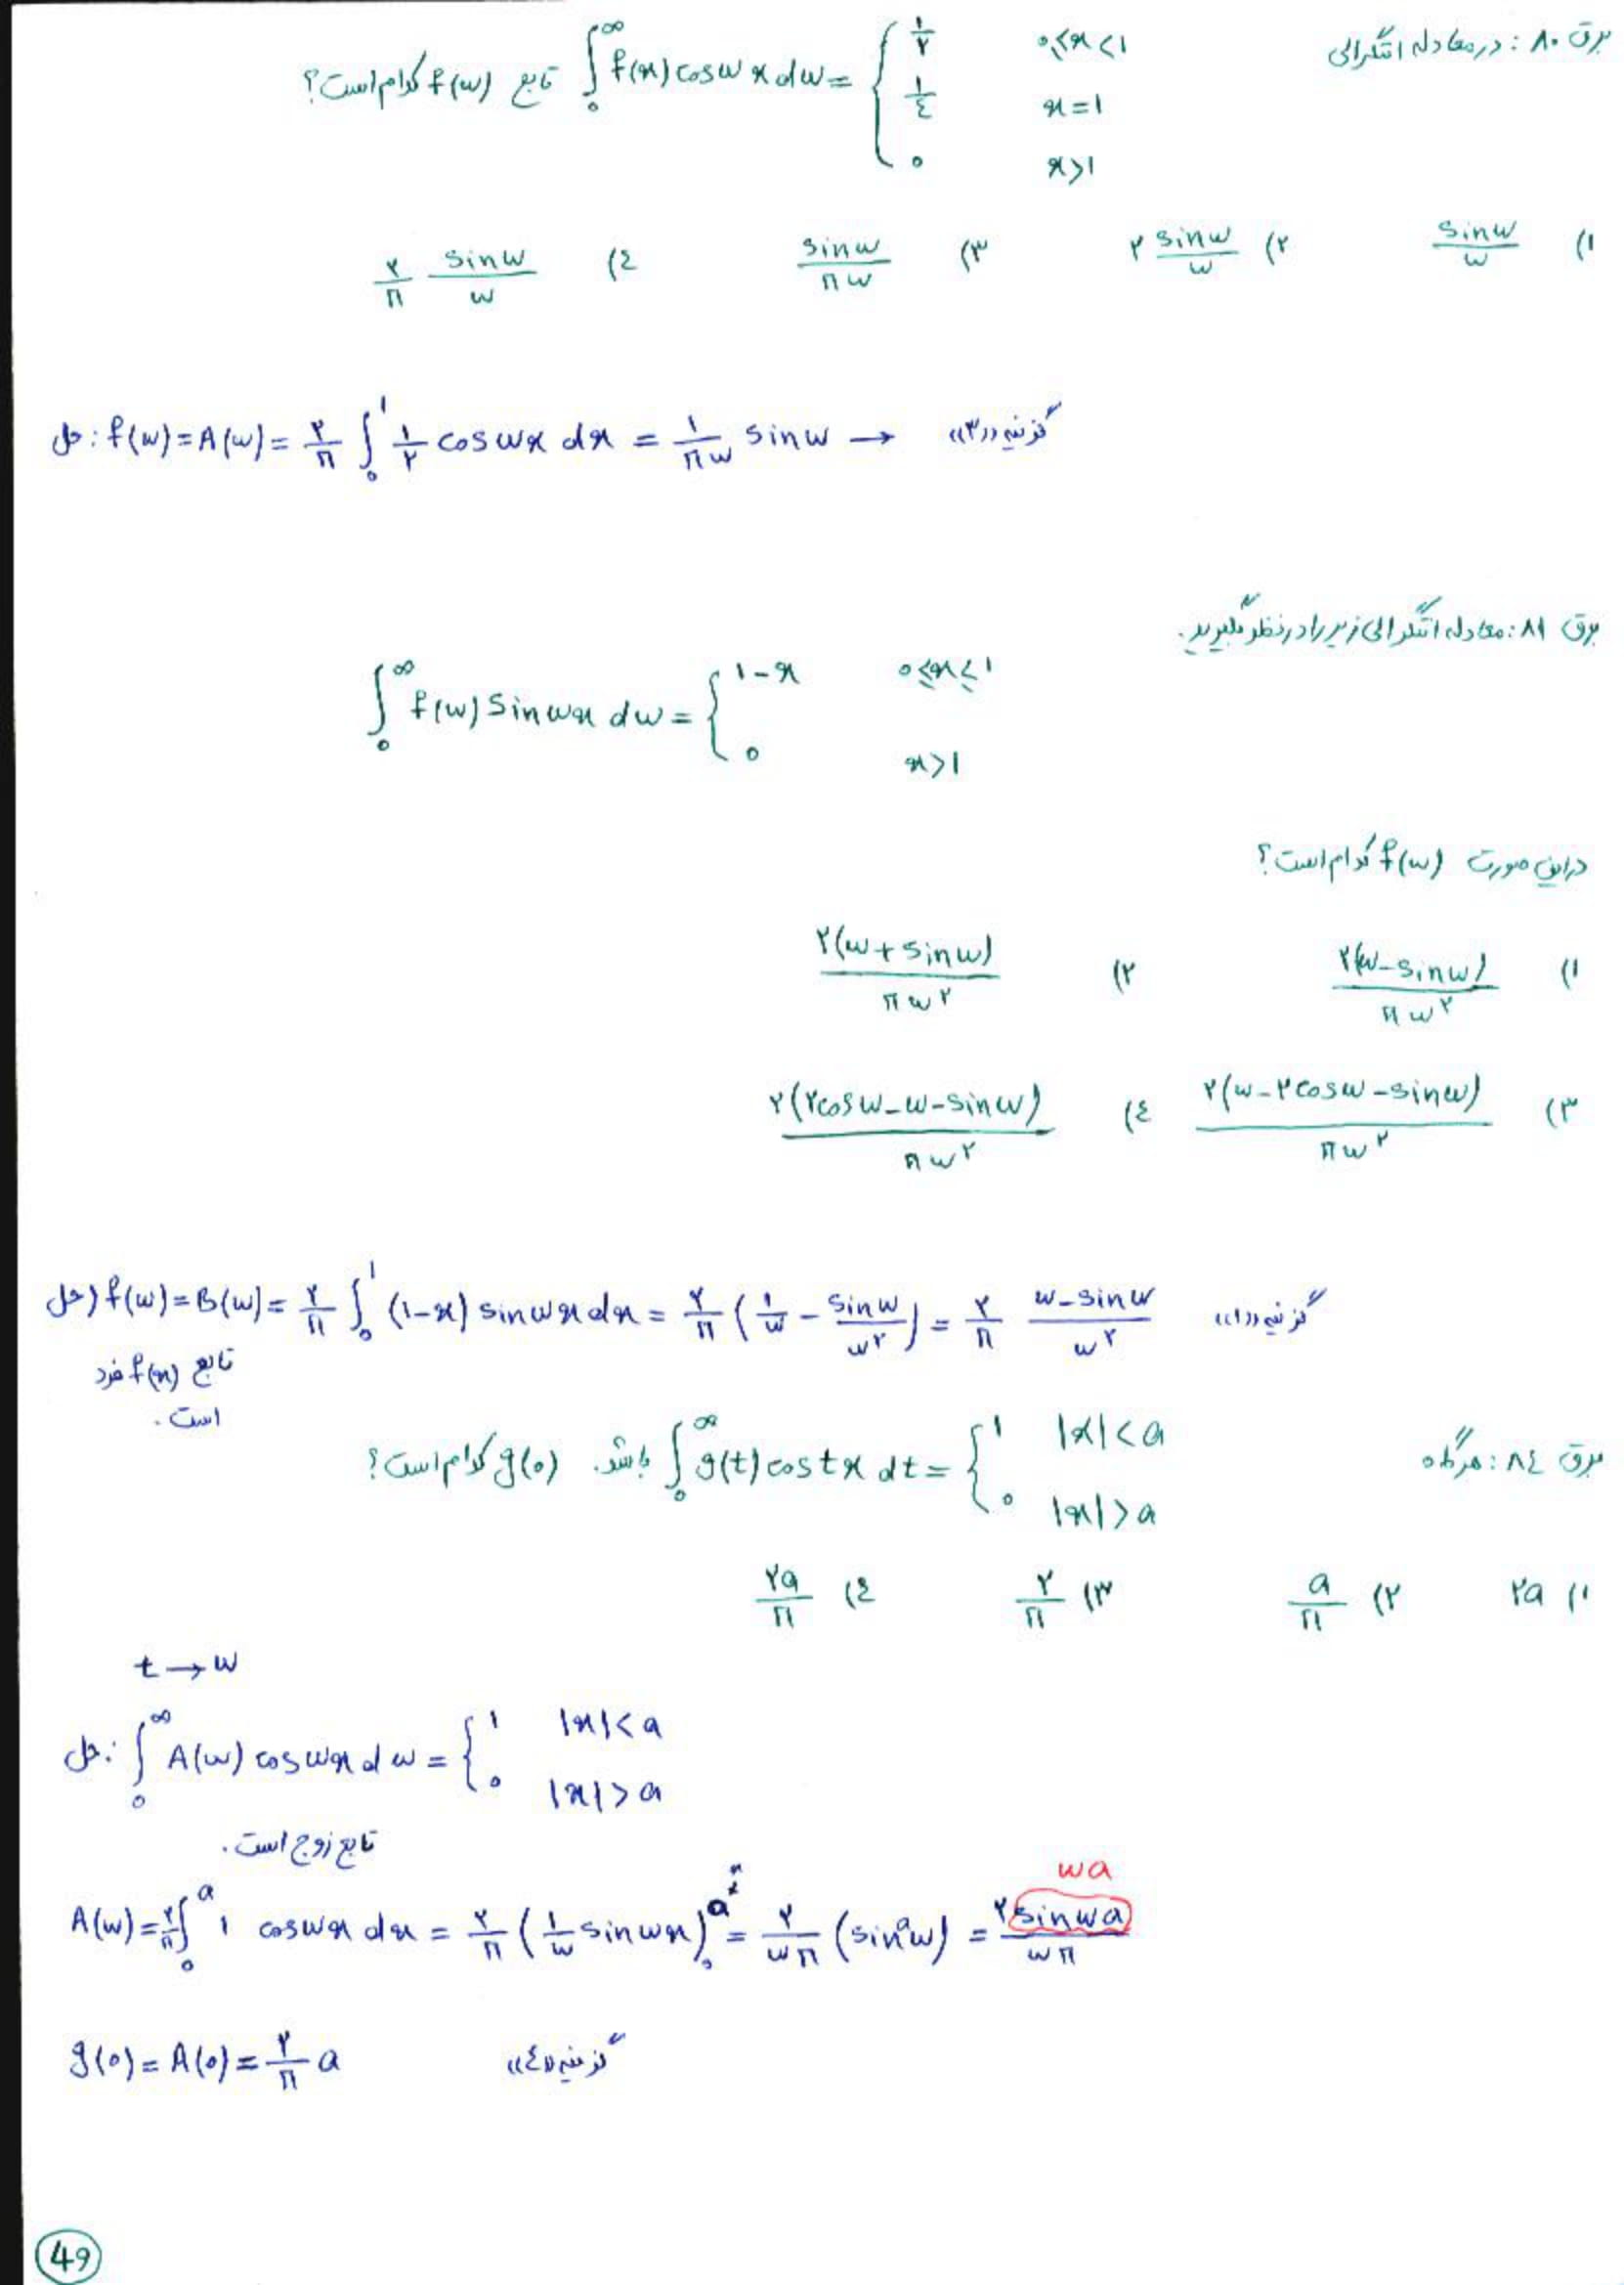 برق ۸۰ : در معادله انتگرالی ∫₀^∞ f(x) cos w x dw = { ۱/۲ ۰≤x<۱ ، ۱/٤ x=۱ ، ۰ x>۱ تابع f(w) کدام است؟
۱) sin w / w ۲) ۲ sin w / w ۳) sin w / πw ٤) ۲/π sin w / w
حل: f(w) = A(w) = ۲/π ∫₀^۱ ۱/۲ cos wx dx = ۱/πw sin w → گزینه «۳»
برق ۸۱ : معادله انتگرالی زیر را در نظر بگیرید.
∫₀^∞ f(w) Sin wx dw = { ۱-x ۰≤x≤۱ ، ۰ x>۱
در این صورت f(w) کدام است؟
۱) ۲(w - sin w) / πw^۲ ۲) ۲(w + sin w) / πw^۲
۳) ۲(w - ۲cos w - sin w) / πw^۲ ٤) ۲(۲cos w - w - sin w) / πw^۲
حل) f(w) = B(w) = ۲/π ∫₀^۱ (۱-x) sin wx dx = ۲/π (۱/w - sin w / w^۲) = ۲/π w - sin w / w^۲ گزینه «۱»
تابع f(x) فرد
است.
برق ۸٤ : هرگاه ∫₀^∞ g(t) cos tx dt = { ۱ |x|<a ، ۰ |x|>a باشد. g(۰) کدام است؟
۱) ۲a ۲) a/π ۳) ۲/π ٤) ۲a/π
t → w
حل: ∫₀^∞ A(w) cos wx dw = { ۱ |x|<a ، ۰ |x|>a
تابع زوج است.
wa
A(w) = ۲/π ∫₀^a ۱ cos wx dx = ۲/π (۱/w sin wx)₀^a = ۲/wπ (sin aw) = ۲ sin wa / wπ
g(۰) = A(۰) = ۲/π a گزینه «٤»
49